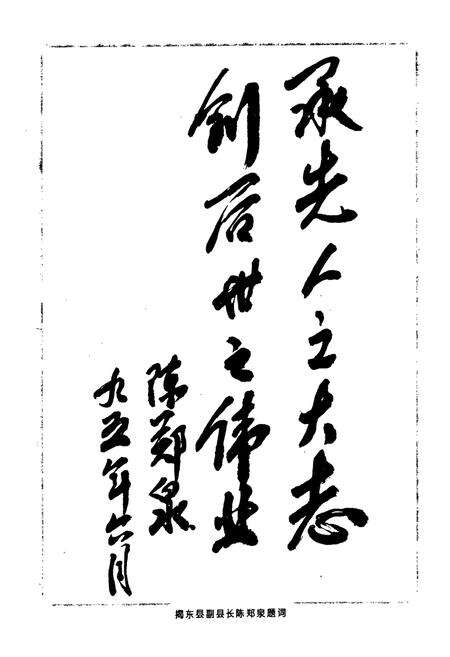 承先人之大志
创后世之伟业
陈郑泉
九五年六月
揭东县副县长陈郑泉题词